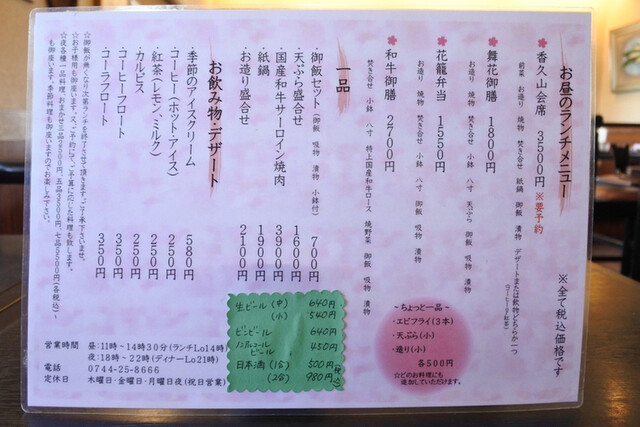 お昼のランチメニュー
※全て税込価格です
❀香久山会席 3500円 ※要予約
前菜 お造り 焼物 焚き合せ 紙鍋 御飯 漬物 デザートまたは飲物どちらか一つ
❀舞花御膳 1800円
お造り 焼物 焚き合せ 小鉢 八寸 天ぷら 御飯 吸物 漬物
❀花籠弁当 1550円
お造り 焼物 焚き合せ 小鉢 八寸 御飯 吸物 漬物
❀和牛御膳 2700円
焚き合せ 小鉢 八寸 特上国産和牛ロース 焼野菜 御飯 吸物 漬物
~ちょっと一品~
・エビフライ(3本)
・天ぷら(小)
・造り(小)
各500円
☆どのお料理にも
追加していただけます。
一品
・御飯セット(御飯 吸物 漬物 小鉢付) 700円
・天ぷら盛合せ 1600円
・国産和牛サーロイン焼肉 3900円
・紙鍋 1900円
・お造り盛合せ 2100円
お飲み物・デザート
・季節のアイスクリーム 580円
・コーヒー(ホット・アイス) 250円
・紅茶(レモン、ミルク) 250円
・カルピス 250円
・コーヒーフロート 350円
・コーラフロート 350円
生ビール (中) 640円
(小) 540円
ビンビール 640円
ノンアルコールビール 450円
日本酒 (1合) 500円
(2合) 980円
税込
☆御飯が無くなり次第ランチを終了させて頂きます。ご了承下さいませ。
☆お子様用も御座います。又、ご予約にて、ご予算に応じた料理も致します。
☆夜各種一品料理、おまかせ三品2500円、五品3500円、七品5500円(各税込)~
も御座います。季節料理も御座いますのでお楽しみ下さい。
営業時間 昼:11時~14時30分(ランチLo14時)
夜:18時~22時(ディナーLo21時)
電話 0744-25-8666
定休日 木曜日・金曜日・月曜日夜(祝日営業)